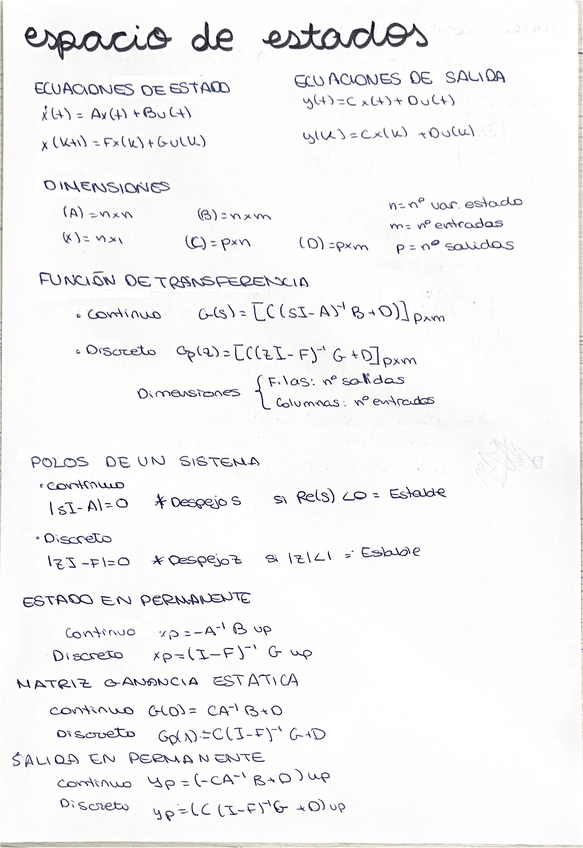 espacio de estados
ECUACIONES DE ESTADO
ẋ(t) = Ax(t) + Bu(t)
x(k+1) = Fx(k) + Gu(k)
ECUACIONES DE SALIDA
y(t) = Cx(t) + Du(t)
y(k) = Cx(k) + Du(k)
DIMENSIONES
(A) = n×n (B) = n×m
(x) = n×1 (C) = p×n (D) = p×m
n = nº var. estado
m = nº entradas
p = nº salidas
FUNCIÓN DE TRANSFERENCIA
• continuo G(s) = [C(sI-A)⁻¹ B+D)]p×m
• Discreto Gp(z) = [C(zI-F)⁻¹ G+D]p×m
Dimensiones { Filas: nº salidas
Columnas: nº entradas
POLOS DE UN SISTEMA
• continuo
|sI-A|=0 * Despejo s si Re(s) <0 = Estable
• Discreto
|zI-F|=0 * Despejo z si |z|<1 = Estable
ESTADO EN PERMANENTE
Continuo xp=-A⁻¹ B up
Discreto xp=(I-F)⁻¹ G up
MATRIZ GANANCIA ESTATICA
continuo G(0)= CA⁻¹ B+D
Discreto Gp(1)=C(I-F)⁻¹ G+D
SALIDA EN PERMANENTE
continuo yp=(-CA⁻¹ B+D) up
Discreto yp=(C(I-F)⁻¹G +D) up